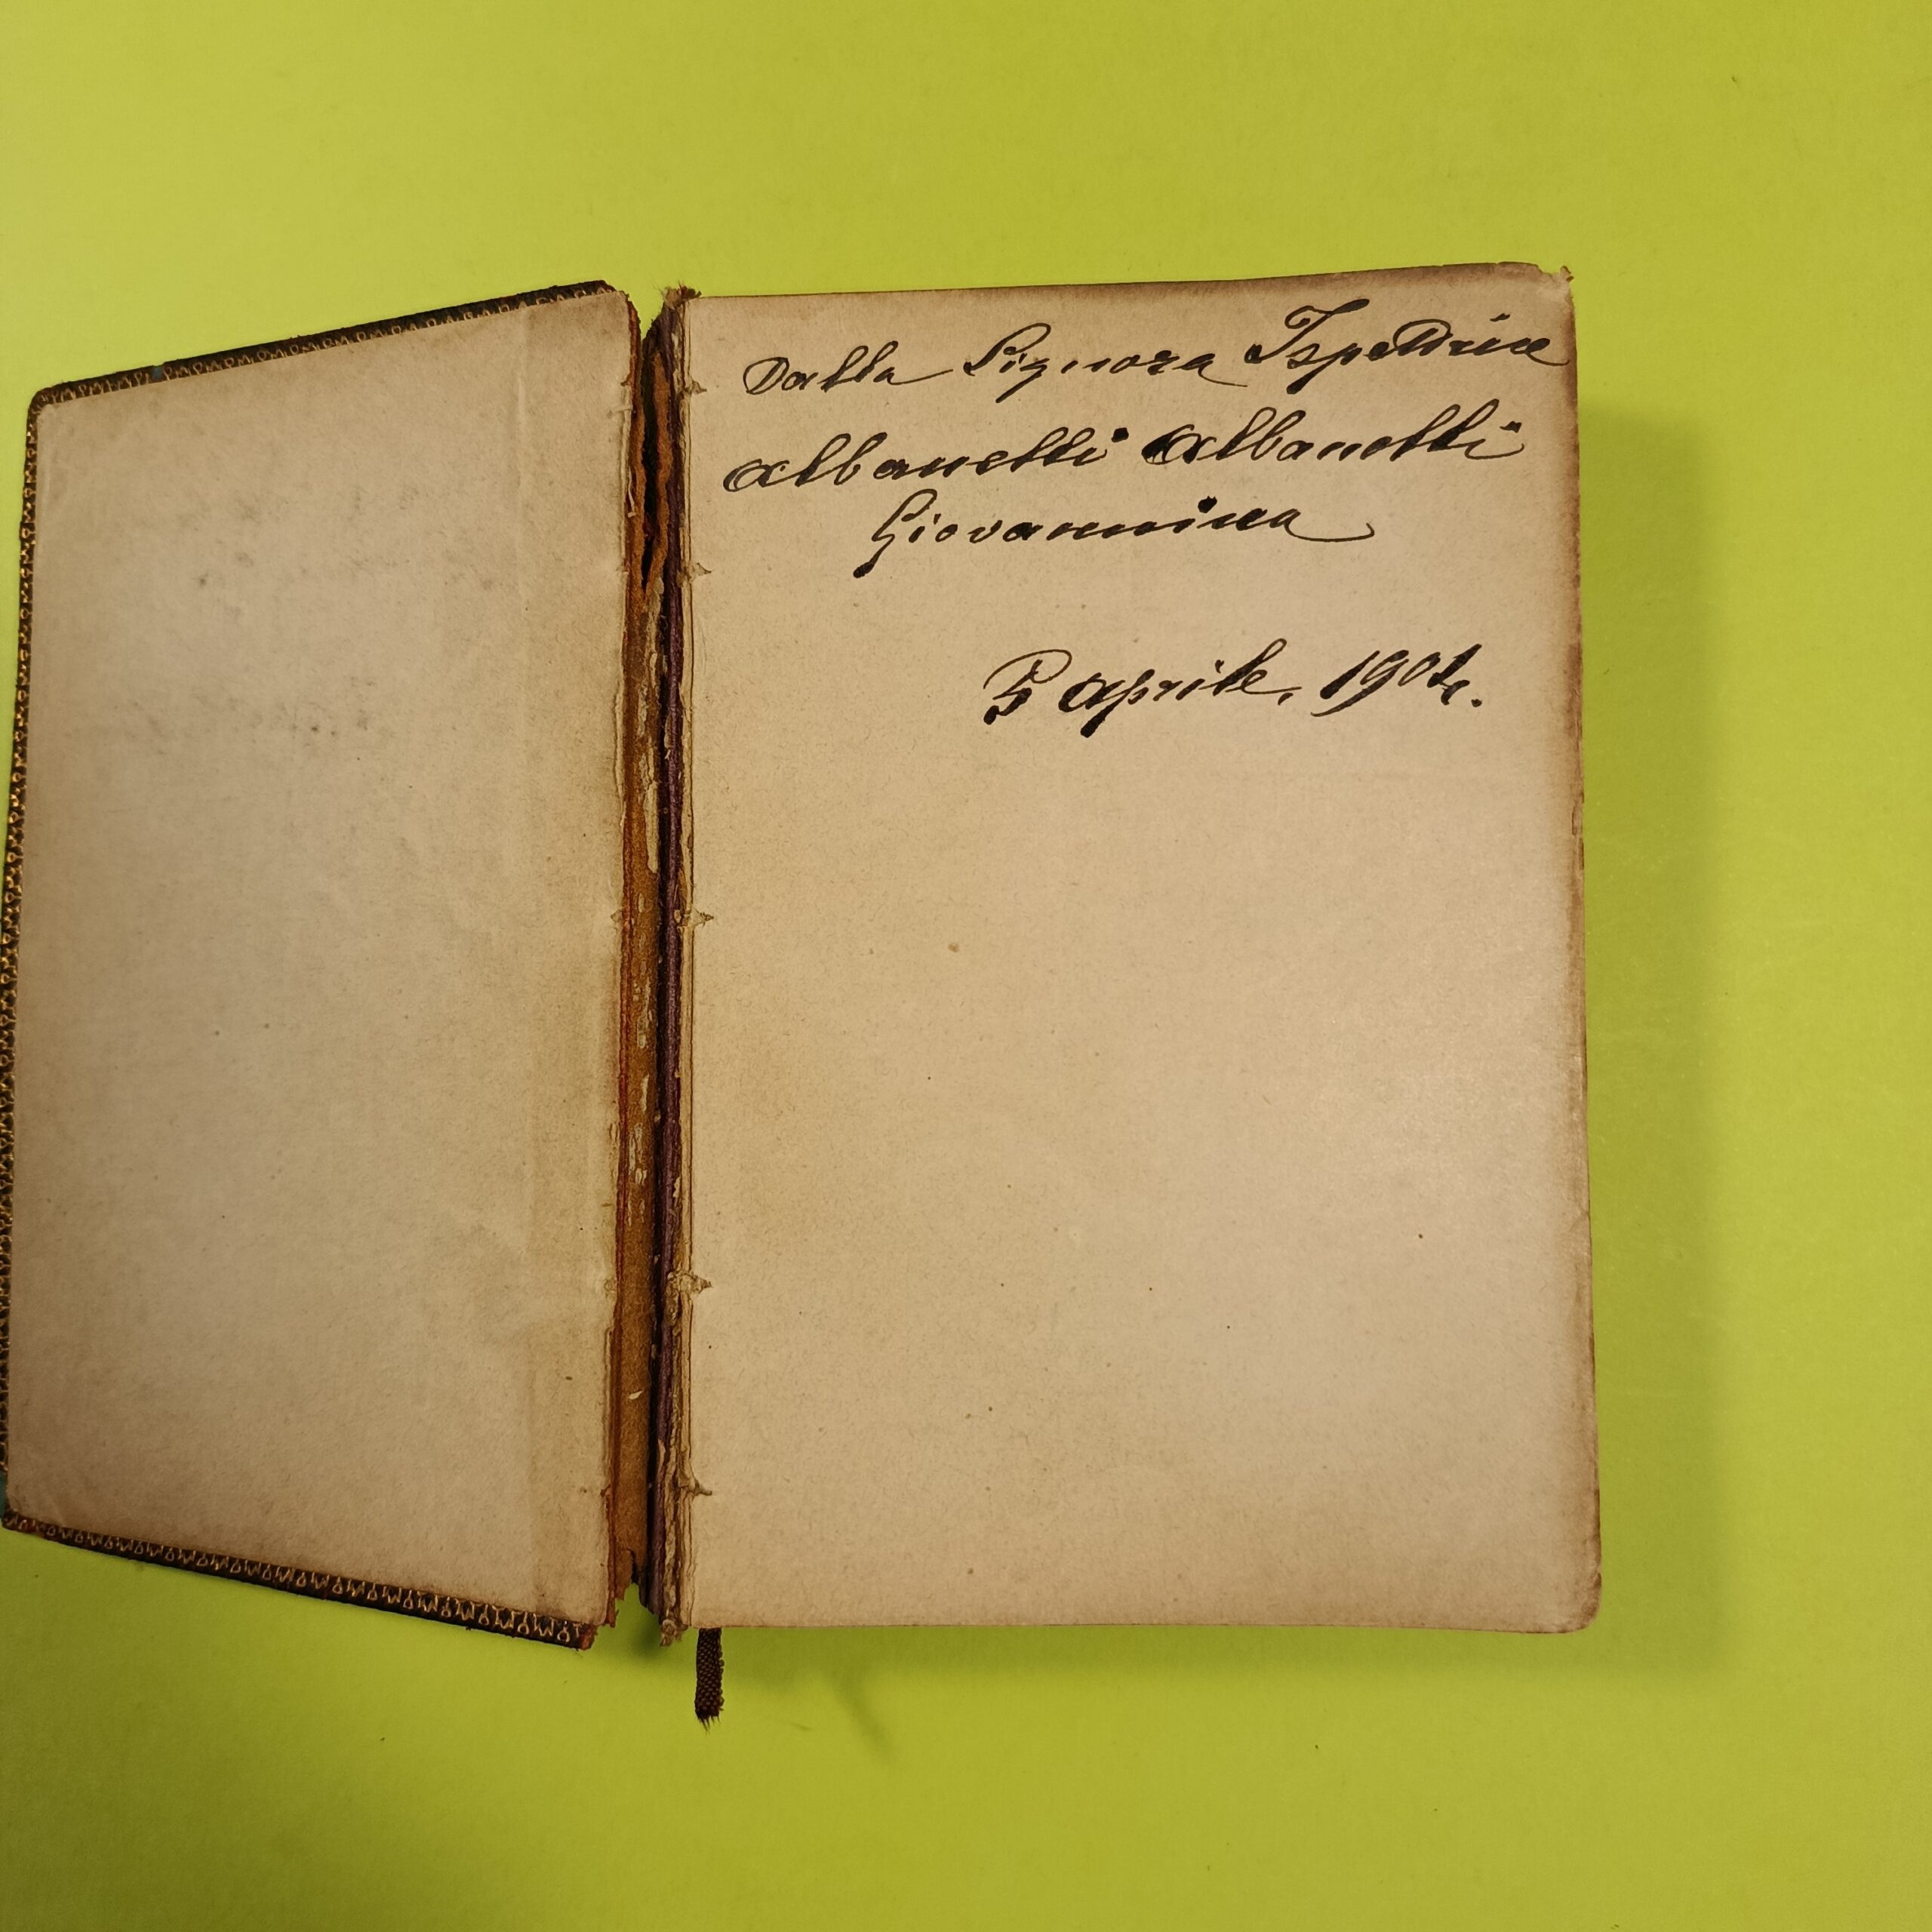 Dalla Signora Ispettrice
Albanelli Albanelli
Giovannina
5 Aprile, 1904.